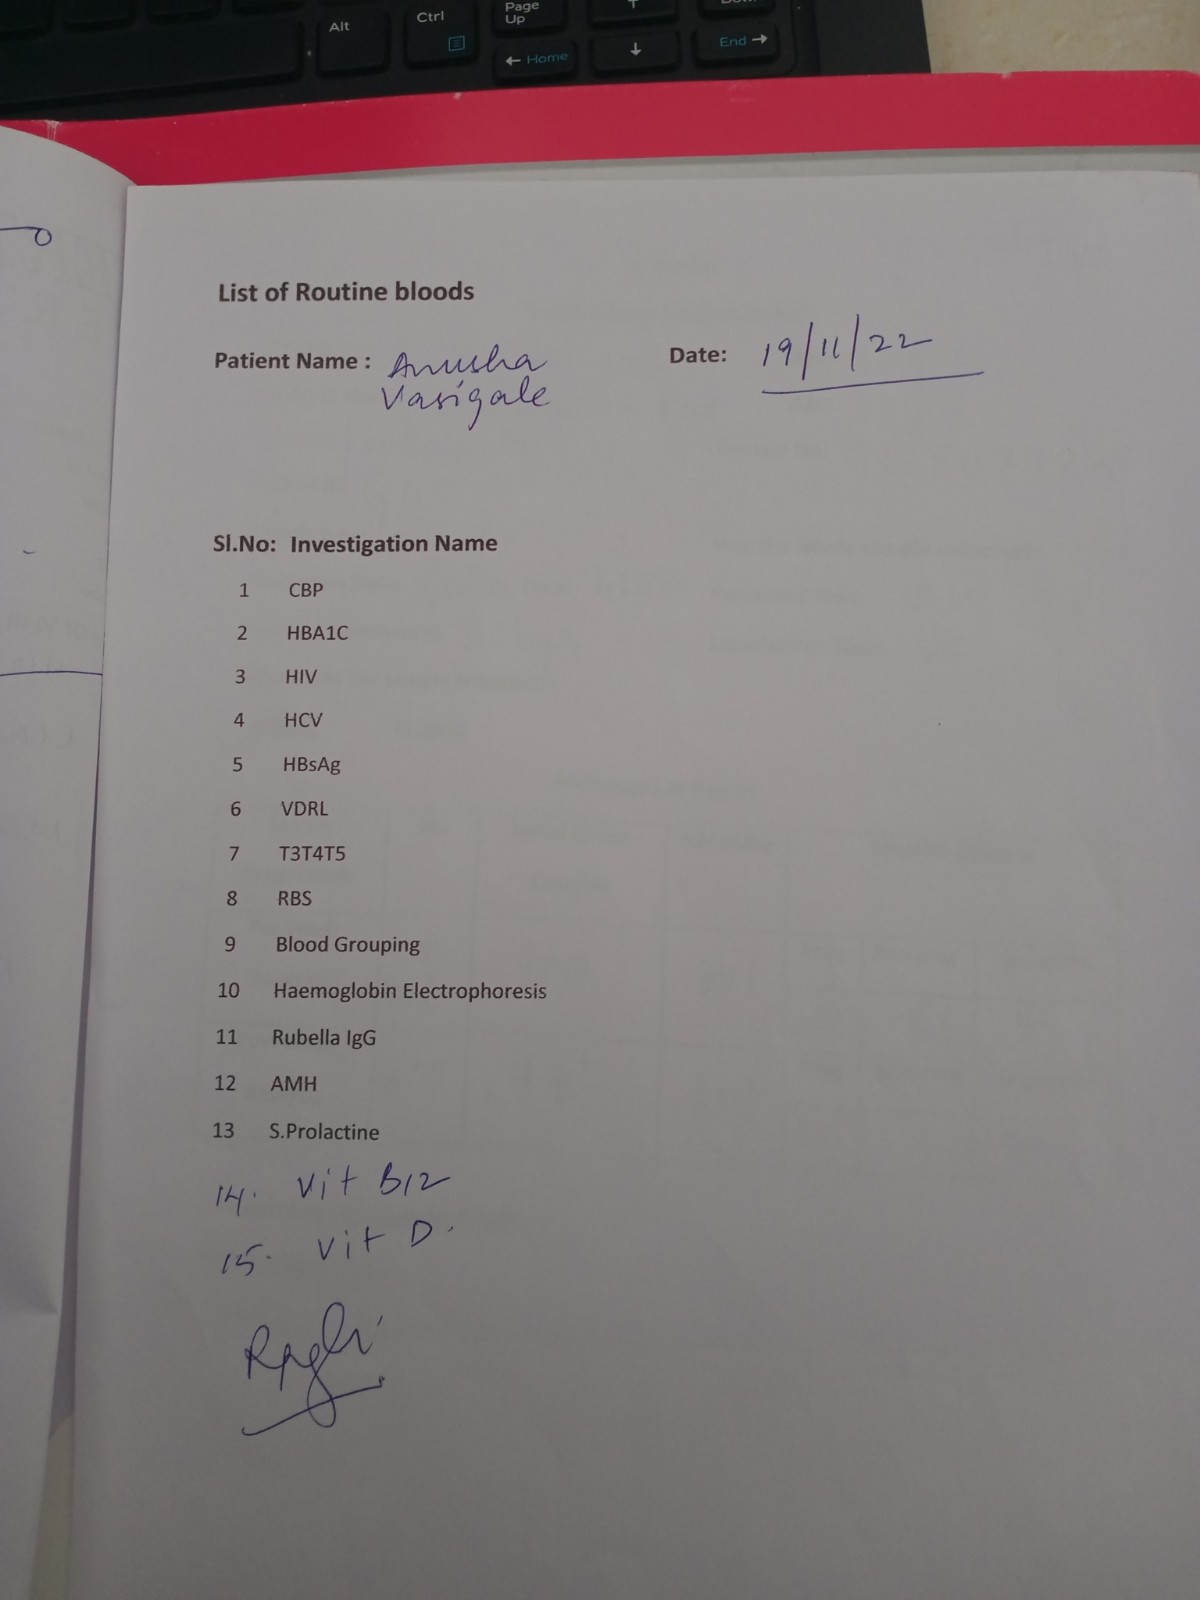 Alt
Ctrl
Page
Up
← Home
↓
End →
List of Routine bloods
Patient Name : Anusha
Vasigale
Date: 19/11/22
Sl.No: Investigation Name
1 CBP
2 HBA1C
3 HIV
4 HCV
5 HBsAg
6 VDRL
7 T3T4T5
8 RBS
9 Blood Grouping
10 Haemoglobin Electrophoresis
11 Rubella IgG
12 AMH
13 S.Prolactine
14. Vit B12
15. Vit D.